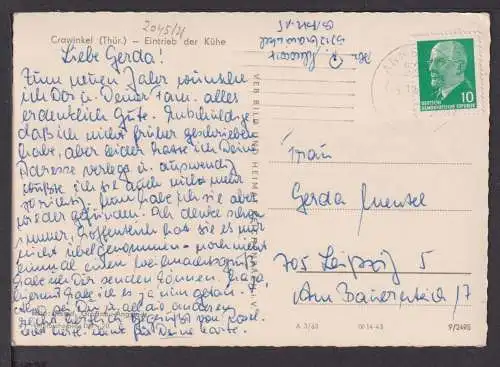 2045/21
Crawinkel (Thür.) - Eintrieb der Kühe
Liebe Gerda!
Zum neuen Jahr wünsche
ich Dir u. Deiner Fam. alles
erdenklich Gute. Entschuldige
daß ich nicht früher geschrieben
habe, aber leider hatte ich Deine
Adresse verlegt u. auswendig
wußte ich sie auch nicht mehr
so richtig. Nun habe ich sie aber
wieder gefunden. Ich denke schon
immer, hoffentlich hat sie es mir
nicht übelgenommen - noch nicht
einmal einen Weihnachtsgruß
habe ich Dir senden können.
hiermit habe ich es ja nun getan.
Also sei Du u. all die anderen
recht herzlich gegrüßt von
Deine Karte.
VEB BILD UND HEIMAT REICHENBACH I. V.
10
DEUTSCHE
DEMOKRATISCHE REPUBLIK
Frau
Gerda Mensel
705 Leipzig 5
Am Bauernteich 17
A 3/63
9/2495